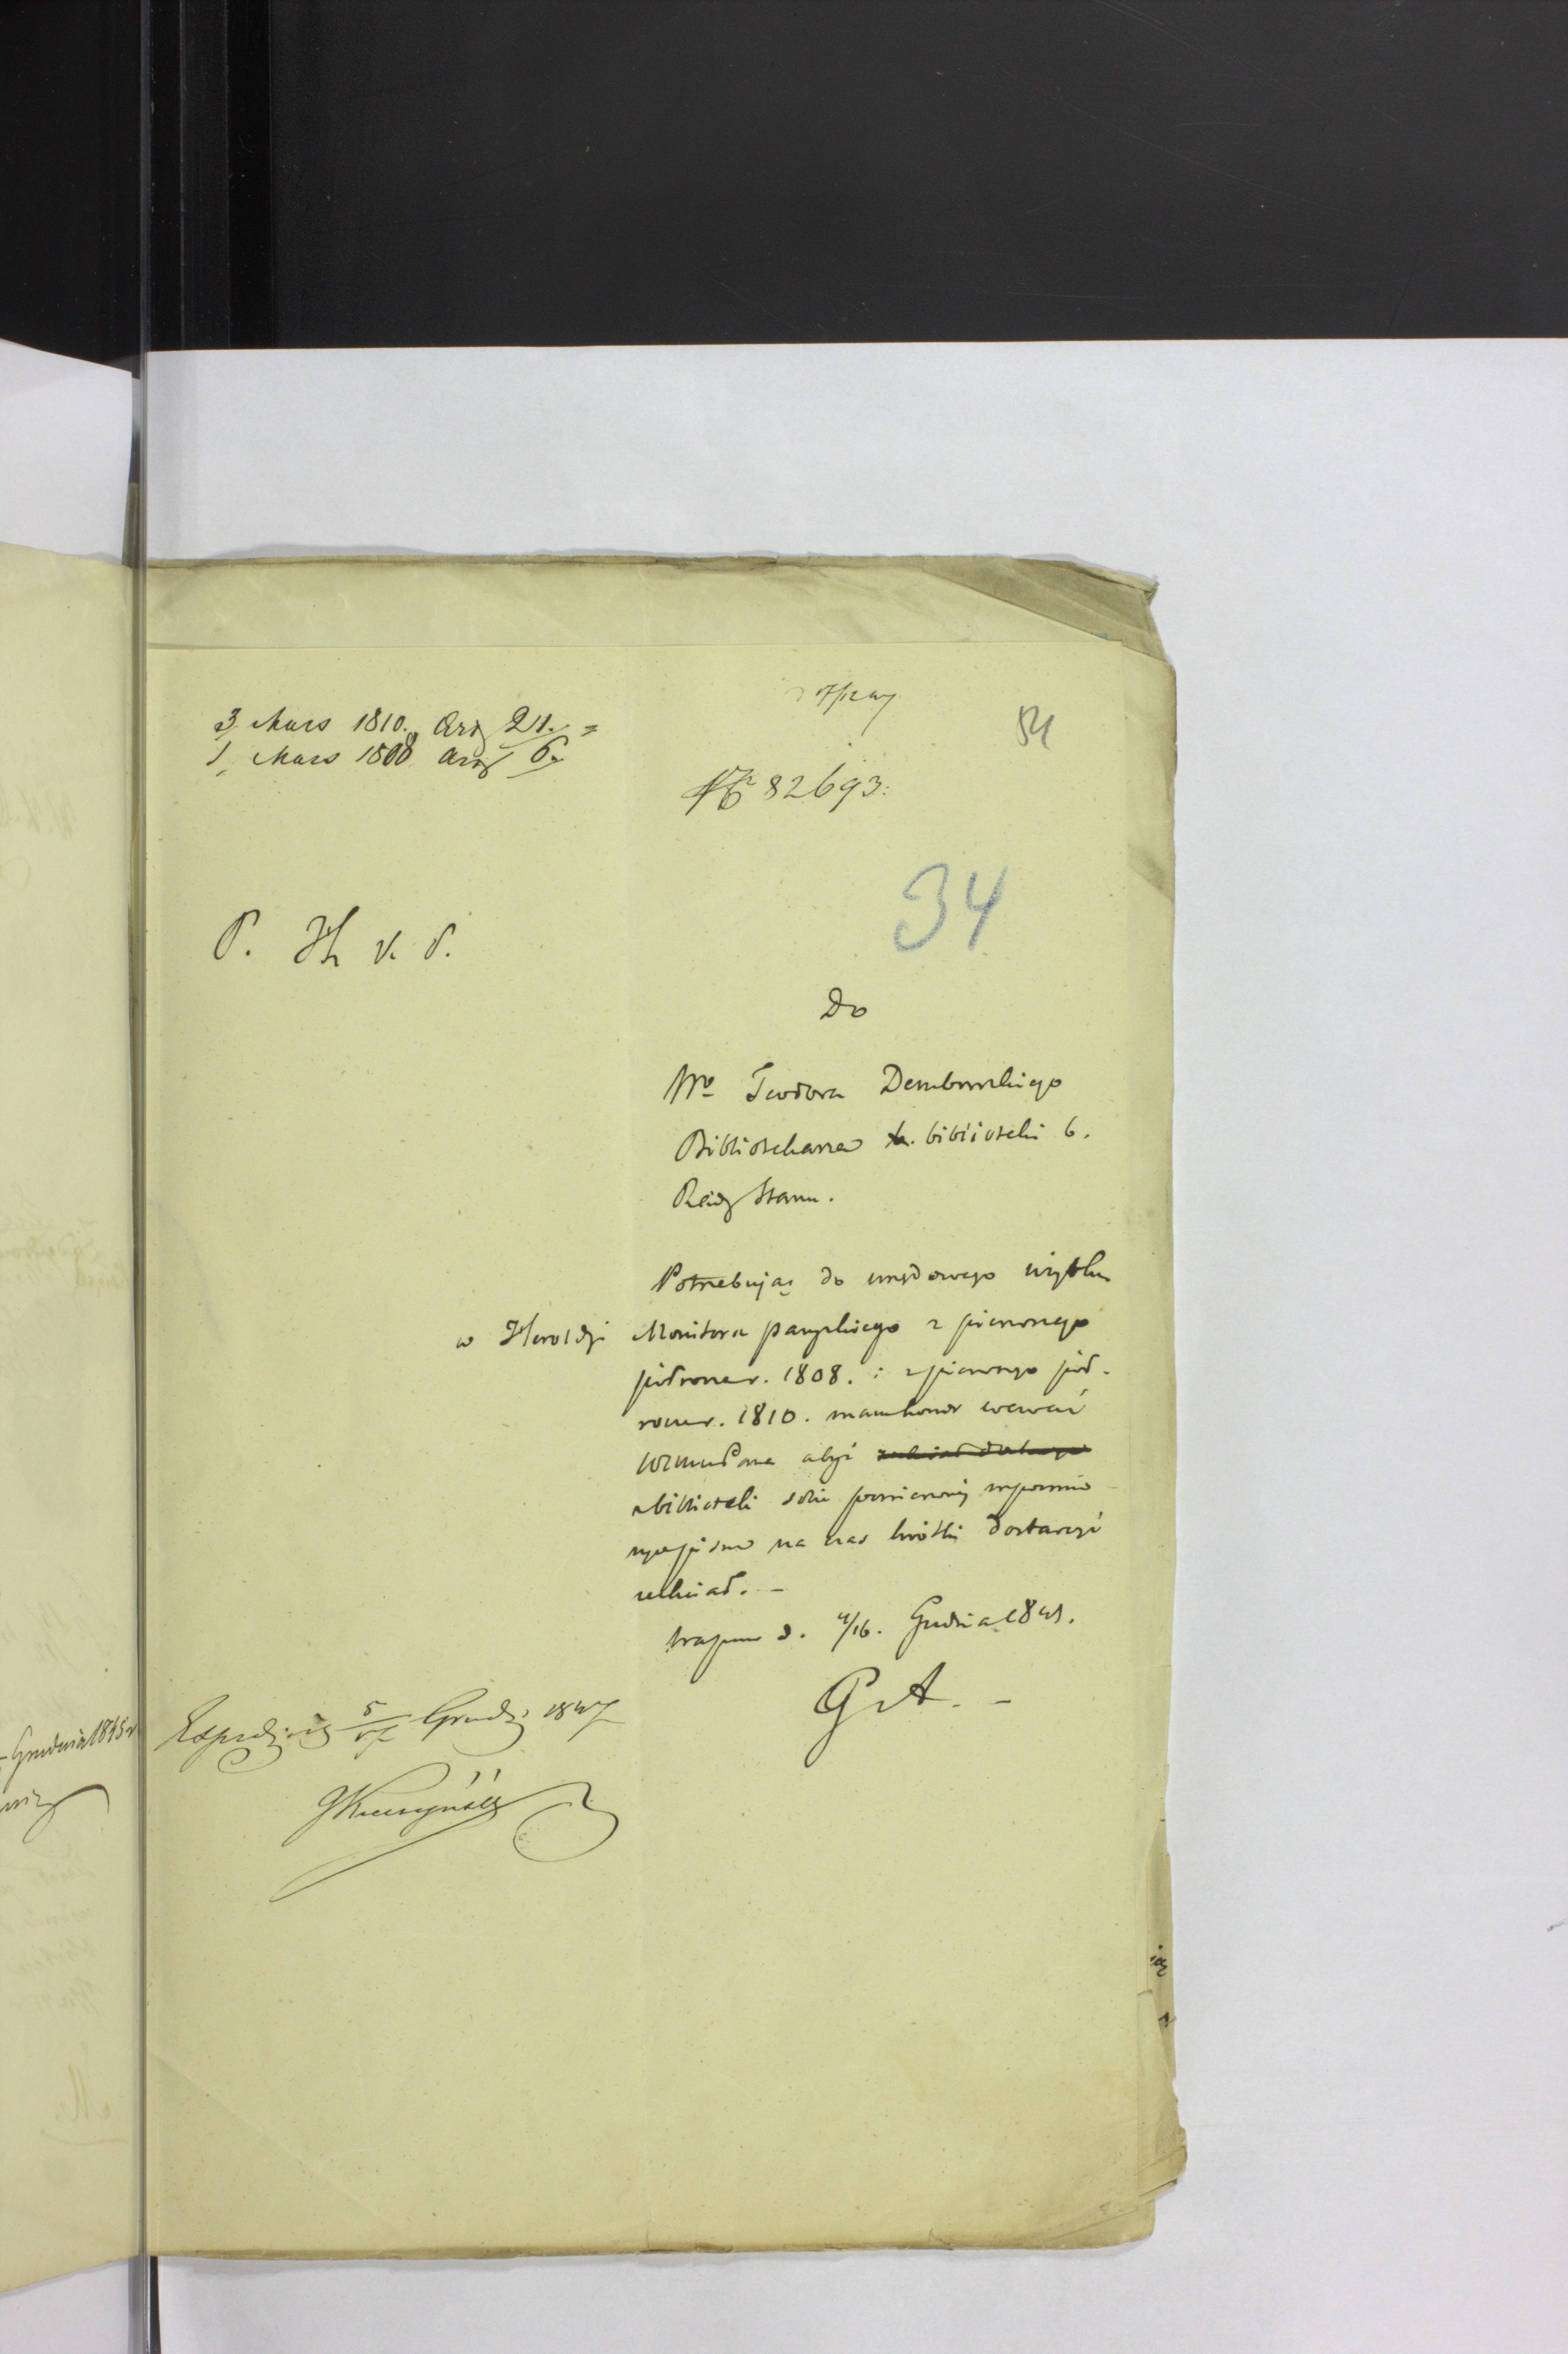 3. Mars 1810. Ark 21. =
1. Mars 1808 ark 6.
54
№ 82693:
34
P. H. K. S.
Do
Wo Teodora Dembowskiego
Bibliotekarza biblioteki b.
Rady Stanu.
Potrzebując do urzędowego użytku
w Heroldji Monitora paryzkiego z pierwszego
półrocza r. 1808. i z pierwszego pół-
rocza r. 1810. mam honor wezwać
abyś
z biblioteki sobie powierzonej wspomnio
ne pismo na czas krótki dostarczyć
zechciał. -
Warszawa d. 4/16. Grudnia 1847.
G A. -
Expedjują 5/17 Grudz. 1847
Grudnia 1845 r